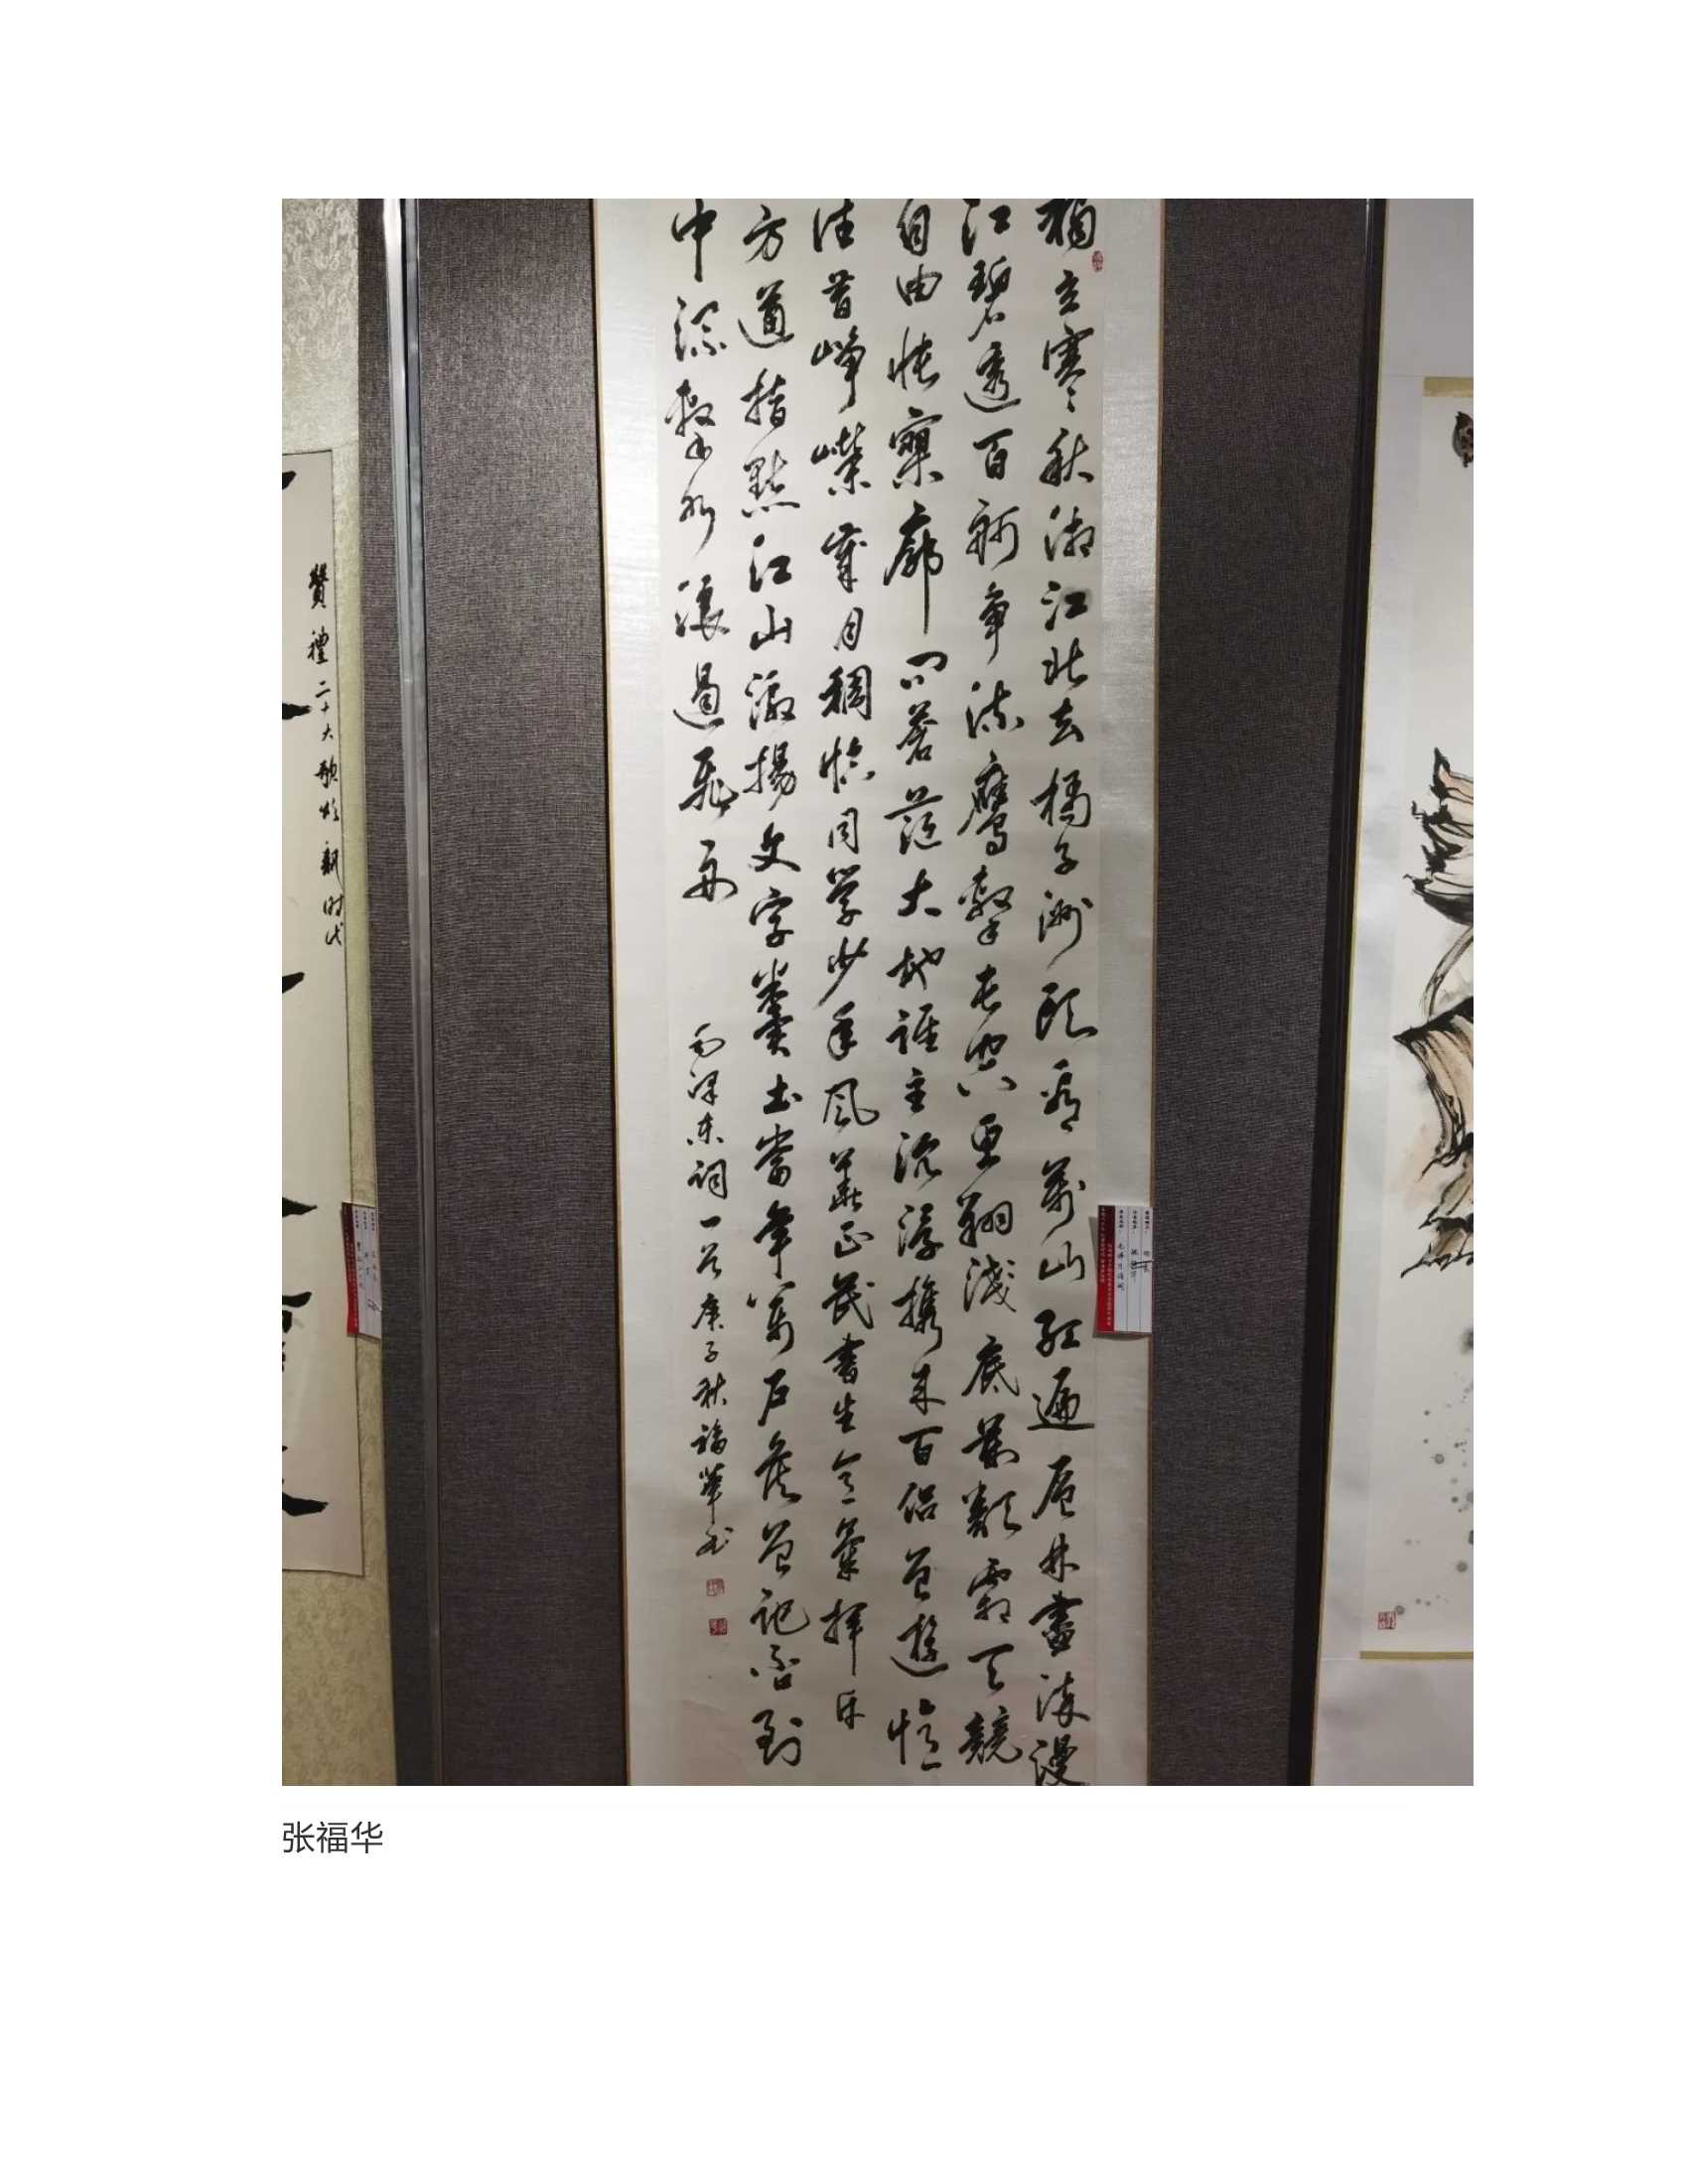 獨立寒秋湘江北去橘子洲頭看萬山紅遍層林盡染漫
江碧透百舸爭流鷹擊長空魚翔淺底萬類霜天競
自由悵寥廓問蒼茫大地誰主沉浮攜來百侶曾遊憶
往昔崢嶸歲月稠恰同學少年風華正茂書生意氣揮斥
方遒指點江山激揚文字糞土當年萬戶侯曾記否到
中流擊水浪遏飛舟
毛澤東詞一首庚子秋福華书
贊禮二十大歌頌新时代
张福华